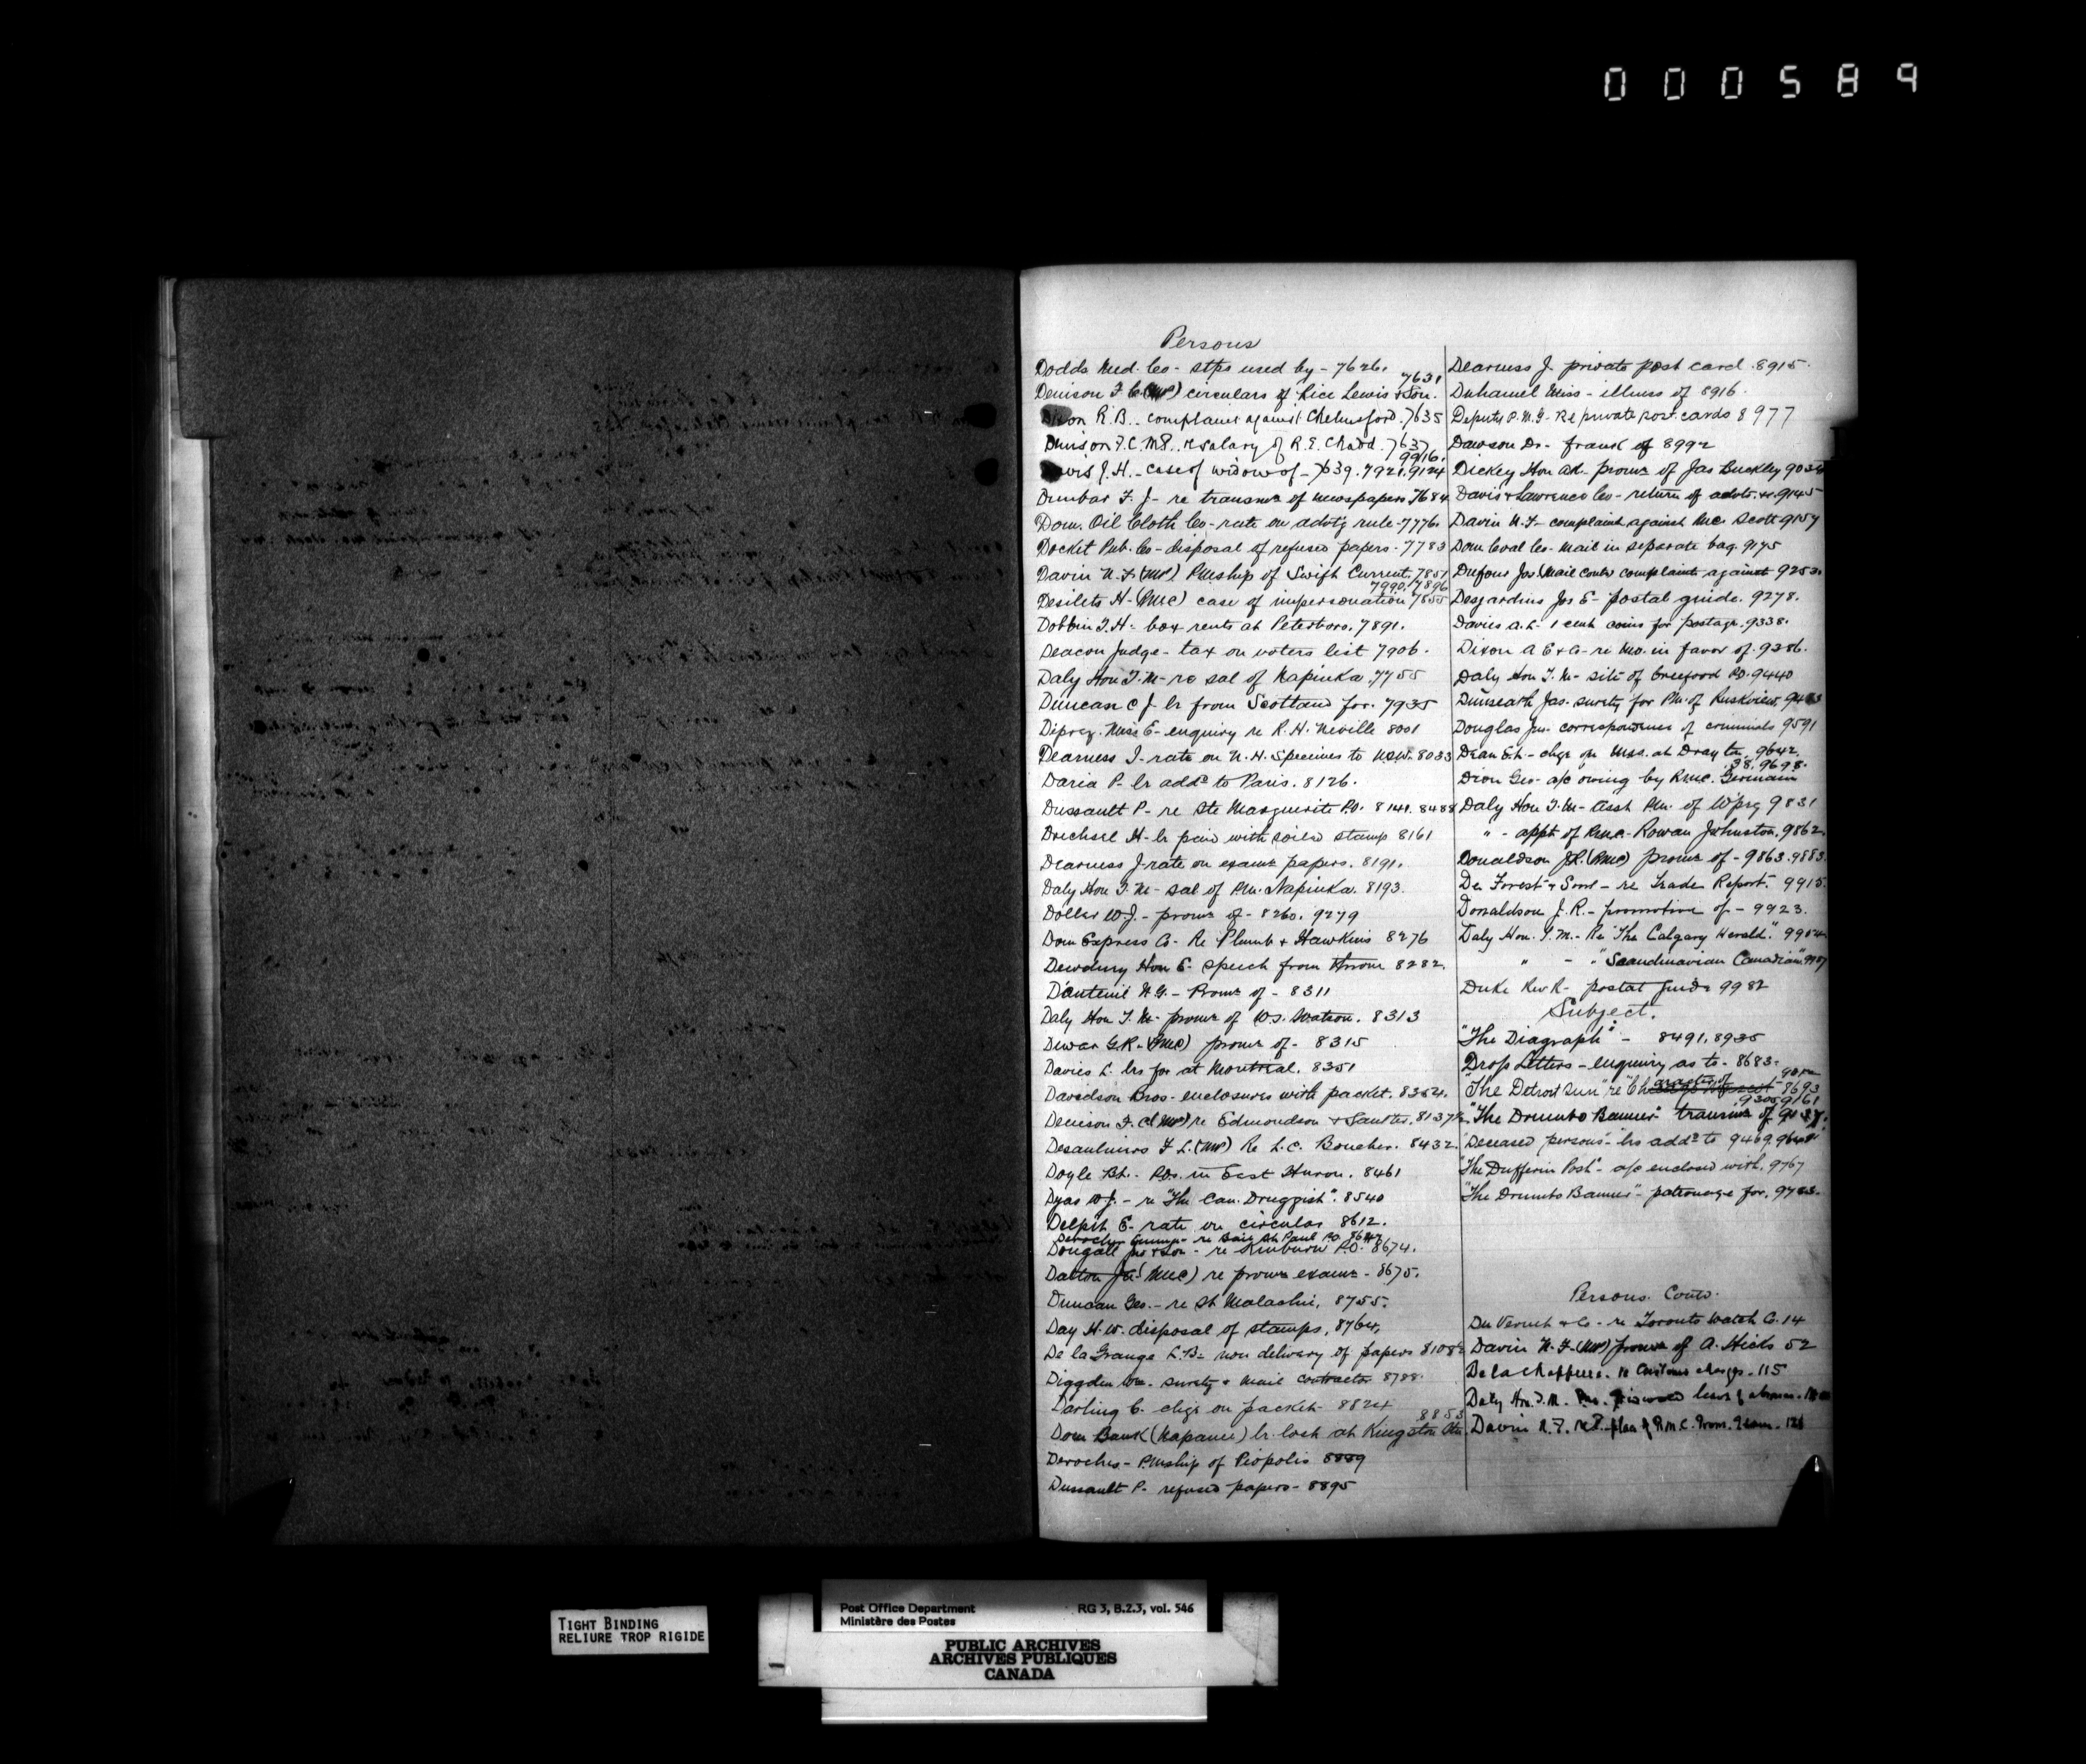 000589
Persons
Dodds Med. Co - stps used by - 7626.
7631
Denison F. C. (MP) circulars of Rice Lewis & Son.
R. B. - complaint against Chelmsford. 7635
Denison F. C. M.P. re salary of R. E. Chadd. 7637
9916.
J. H. - case of widow of - 7639. 7921. 9124
Dunbar F. J - re transmn of newspapers 7684
Dom. Oil Cloth Co - rate on advtg rule - 7776.
Docket Pub. Co - disposal of refused papers - 7783
Davin N. F. (MP) PMship of Swift Current. 7851
7990. 7896
Desilets H - (RMC) case of impersonation 7855
Dobbin T. H - box rents at Peterboro. 7891.
Deacon Judge - tax on voters list 7906.
Daly Hon T. M - re sal of Napinka. 7755
Duncan C J - lr from Scotland for. 7935
Miss E - enquiry re R. H. Neville 8001
Dearness J - rate on N. H. Specimes to NSW. 8033
Daria P - lr addd to Paris. 8126.
Dussault P - re Ste Marguerite PO. 8141. 8488
Drechsel H - lr paid with soiled stamp 8161
Dearness J - rate on examn papers. 8191.
Daly Hon T. M - sal of PM. Napinka. 8193.
Dollar W. J. - promn of - 8260. 9279
Dom Express Co - Re Plumb & Hawkins 8276
Dewdney Hon E - speech from throne 8282.
D'auteuil H. G. - Promn of - 8311
Daly Hon T. M - promn of W. S. Watson. 8313
Dewar G. R. - (RMC) promn of - 8315
Davies L. lrs for at Montreal. 8351
Davidson Bros - enclosures with packet. 8354.
Denison F. C. (MP) re Edmondson & 8137½
Desaulniers F L. (MP) Re L. C. Boucher. 8432
Doyle - POs. in East Huron. 8461
Dyas W. J. - re "The Can. Druggist". 8540
Delpit E - rate on circular 8612.
re Baie St Paul P.O.
Dougall Jas & Son - re Kinburn P.O. 8674.
Dalton (RMC) re promn examn - 8675.
Duncan Geo. - re St Malachie, 8755.
Day H. W. disposal of stamps, 8764,
De la Grange L. B - non delivery of papers 8108½
Diggden Wm. surety & mail contractor 8788.
Darling C. chge on packet 8824
8853
Dom Bank (Napanee) lr lost at Kingston Stn.
Deroches - PMship of Piopolis 8889
Dussault P. refused papers - 8895
Dearness J. private post card. 8915.
Duhamel Miss - illness of 8916.
Deputy P. M. G. - Re private post. cards 8977
Dawson Dr. - frank of 8992
Dickey Hon AR - promn of Jas Buckley
Davis & Lawrence Co - return of advts. &c. 9145
Davin N. F. - complaint against RMC Scott 9157
Dom Coal Co - Mail in separate bag. 9175
Dufour Jos. (Mail Contr) complaints against 9253.
Desjardins Jos E - postal guide. 9278.
Davies A. L - 1 cent coins for postage. 9338.
Dixon A E & Co - re MO. in favor of. 9386.
Daly Hon T. M - site of PO. 9440
Dunseath Jas. surety for PM. of Ruskview.
Douglas Jno. correspondence of criminals 9591
Dean E. H. - chge on Mss. at Drayton, 9642,
38, 9698.
Dion Geo - a/c owing by RMC. Germain
Daly Hon T. M - Asst PM. of W'peg 9831
" - appt of RMC - Rowan Johnston. 9862.
Donaldson J. R. (RMC) promn of - 9863. 9883
De Forest & Sons - re Trade Report. 9915.
Donaldson J. R. - promotion of - 9923.
Daly Hon. T. M. - Re "The Calgary Herald."
" - " "Scandinavian Canadian"
Duke Rev R - postal guide 9982
Subject.
"The Diagraph" - 8491. 8935
Drop Letters - enquiry as to - 8683.
"The Detroit Sun" re 8693
9305 9161
"The Drumbo Banner" transmn of
"Deceased persons" - lrs addd to 9469.
"The Dufferin Post" - a/c enclosed with. 9767
"The Drumbo Banner" - patronage for. 9783.
Persons. Contd.
Du Vernet & Co - re Toronto Watch Co. 14
Davin N. F. (MP) promn of A. Hicks 52
Delachapelle. re Customs charges. 115
Daly Hon. T. M. leave of absence.
Davin N. F. M.P. place of R.M.C. Prom. Exam. 126
TIGHT BINDING
RELIURE TROP RIGIDE
Post Office Department RG 3, B.2.3, vol. 546
Ministère des Postes
PUBLIC ARCHIVES
ARCHIVES PUBLIQUES
CANADA